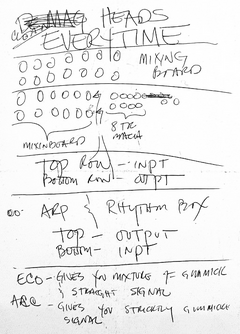 CLEAN MAG HEADS
EVERYTIME
MIXING
BOARD
8 TR
MACH
MIXINBOARD
TOP ROW - INPT
BOTTOM ROW - OUTPT
ARP } RHYTHM BOX
TOP - OUTPUT
BOTTOM - INPT
ECO - GIVES YOU MIXTURE OF GUMMICK
& STRAIGHT SIGNAL
- GIVES YOU STRICTLY GUMMICK
SIGNAL